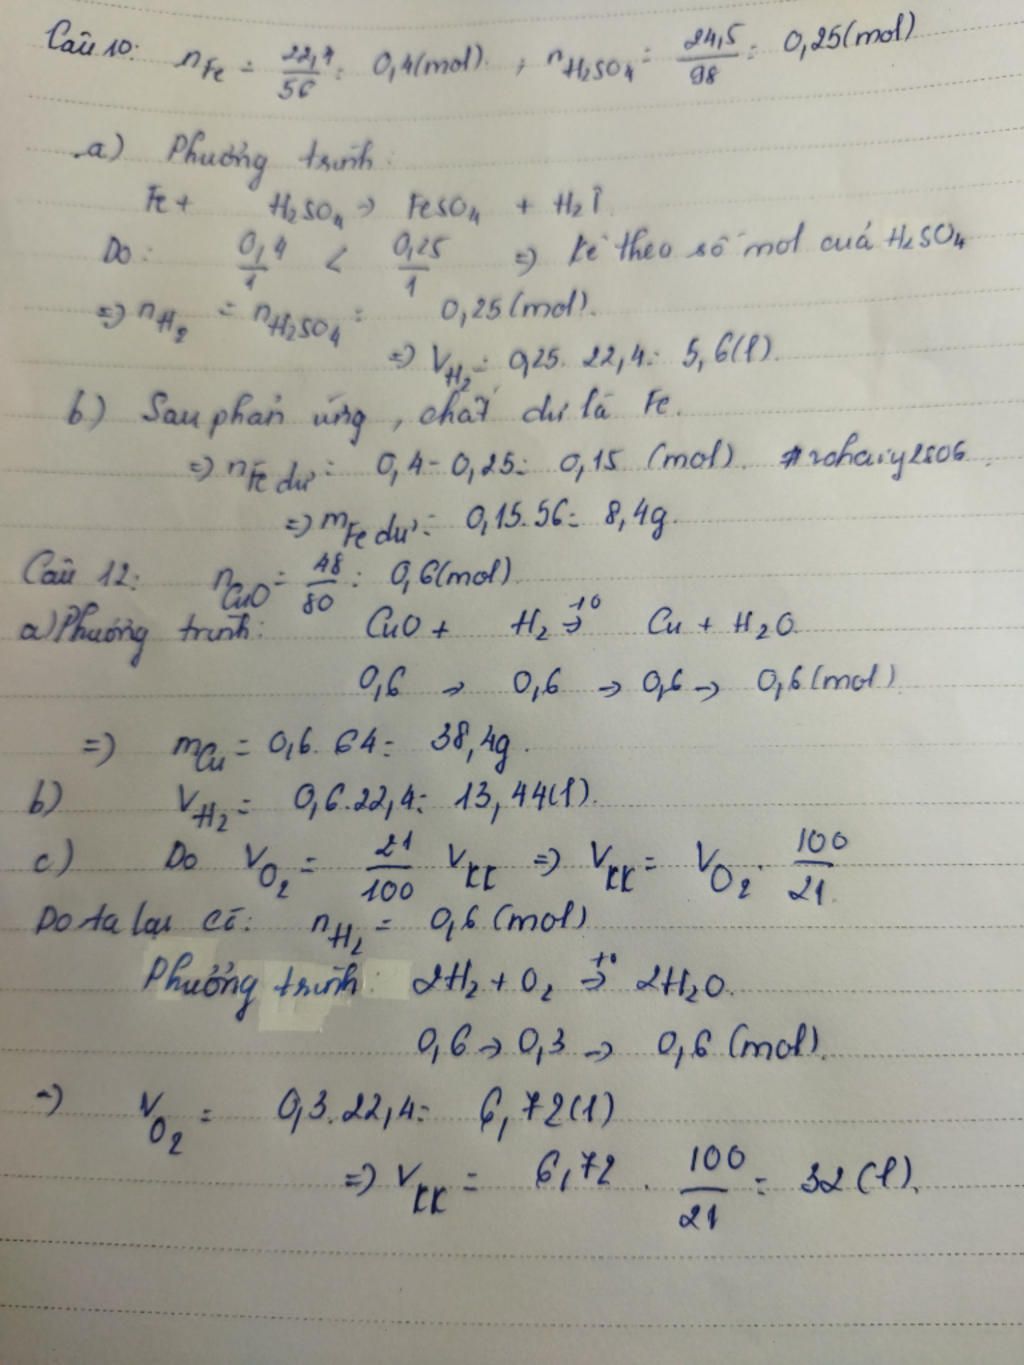 Câu 10: nFe = 22,4/56 = 0,4(mol). ; nH2SO4 = 24,5/98 = 0,25(mol)
a) Phương trình:
Fe + H2SO4 → FeSO4 + H2↑
Do: 0,4/1 < 0,25/1 => Kê theo số mol của H2SO4
=> nH2 = nH2SO4 = 0,25(mol).
=> VH2 = 0,25. 22,4 = 5,6(l).
b) Sau phản ứng, chất dư là Fe.
=> nFe dư = 0,4 - 0,25 = 0,15 (mol).
=> mFe dư = 0,15.56 = 8,4g.
Câu 12: nCuO = 48/80 = 0,6(mol)
a) Phương trình: CuO + H2 →t° Cu + H2O
0,6 → 0,6 → 0,6 → 0,6(mol)
=> mCu = 0,6. 64 = 38,4g.
b) VH2 = 0,6.22,4 = 13,44(l).
c) Do VO2 = 21/100 VKK => VKK = VO2. 100/21.
Do ta lại có: nH2 = 0,6(mol)
Phương trình: 2H2 + O2 →t° 2H2O.
0,6 → 0,3 → 0,6 (mol).
=> VO2 = 0,3.22,4 = 6,72(l)
=> VKK = 6,72 . 100/21 = 32(l).